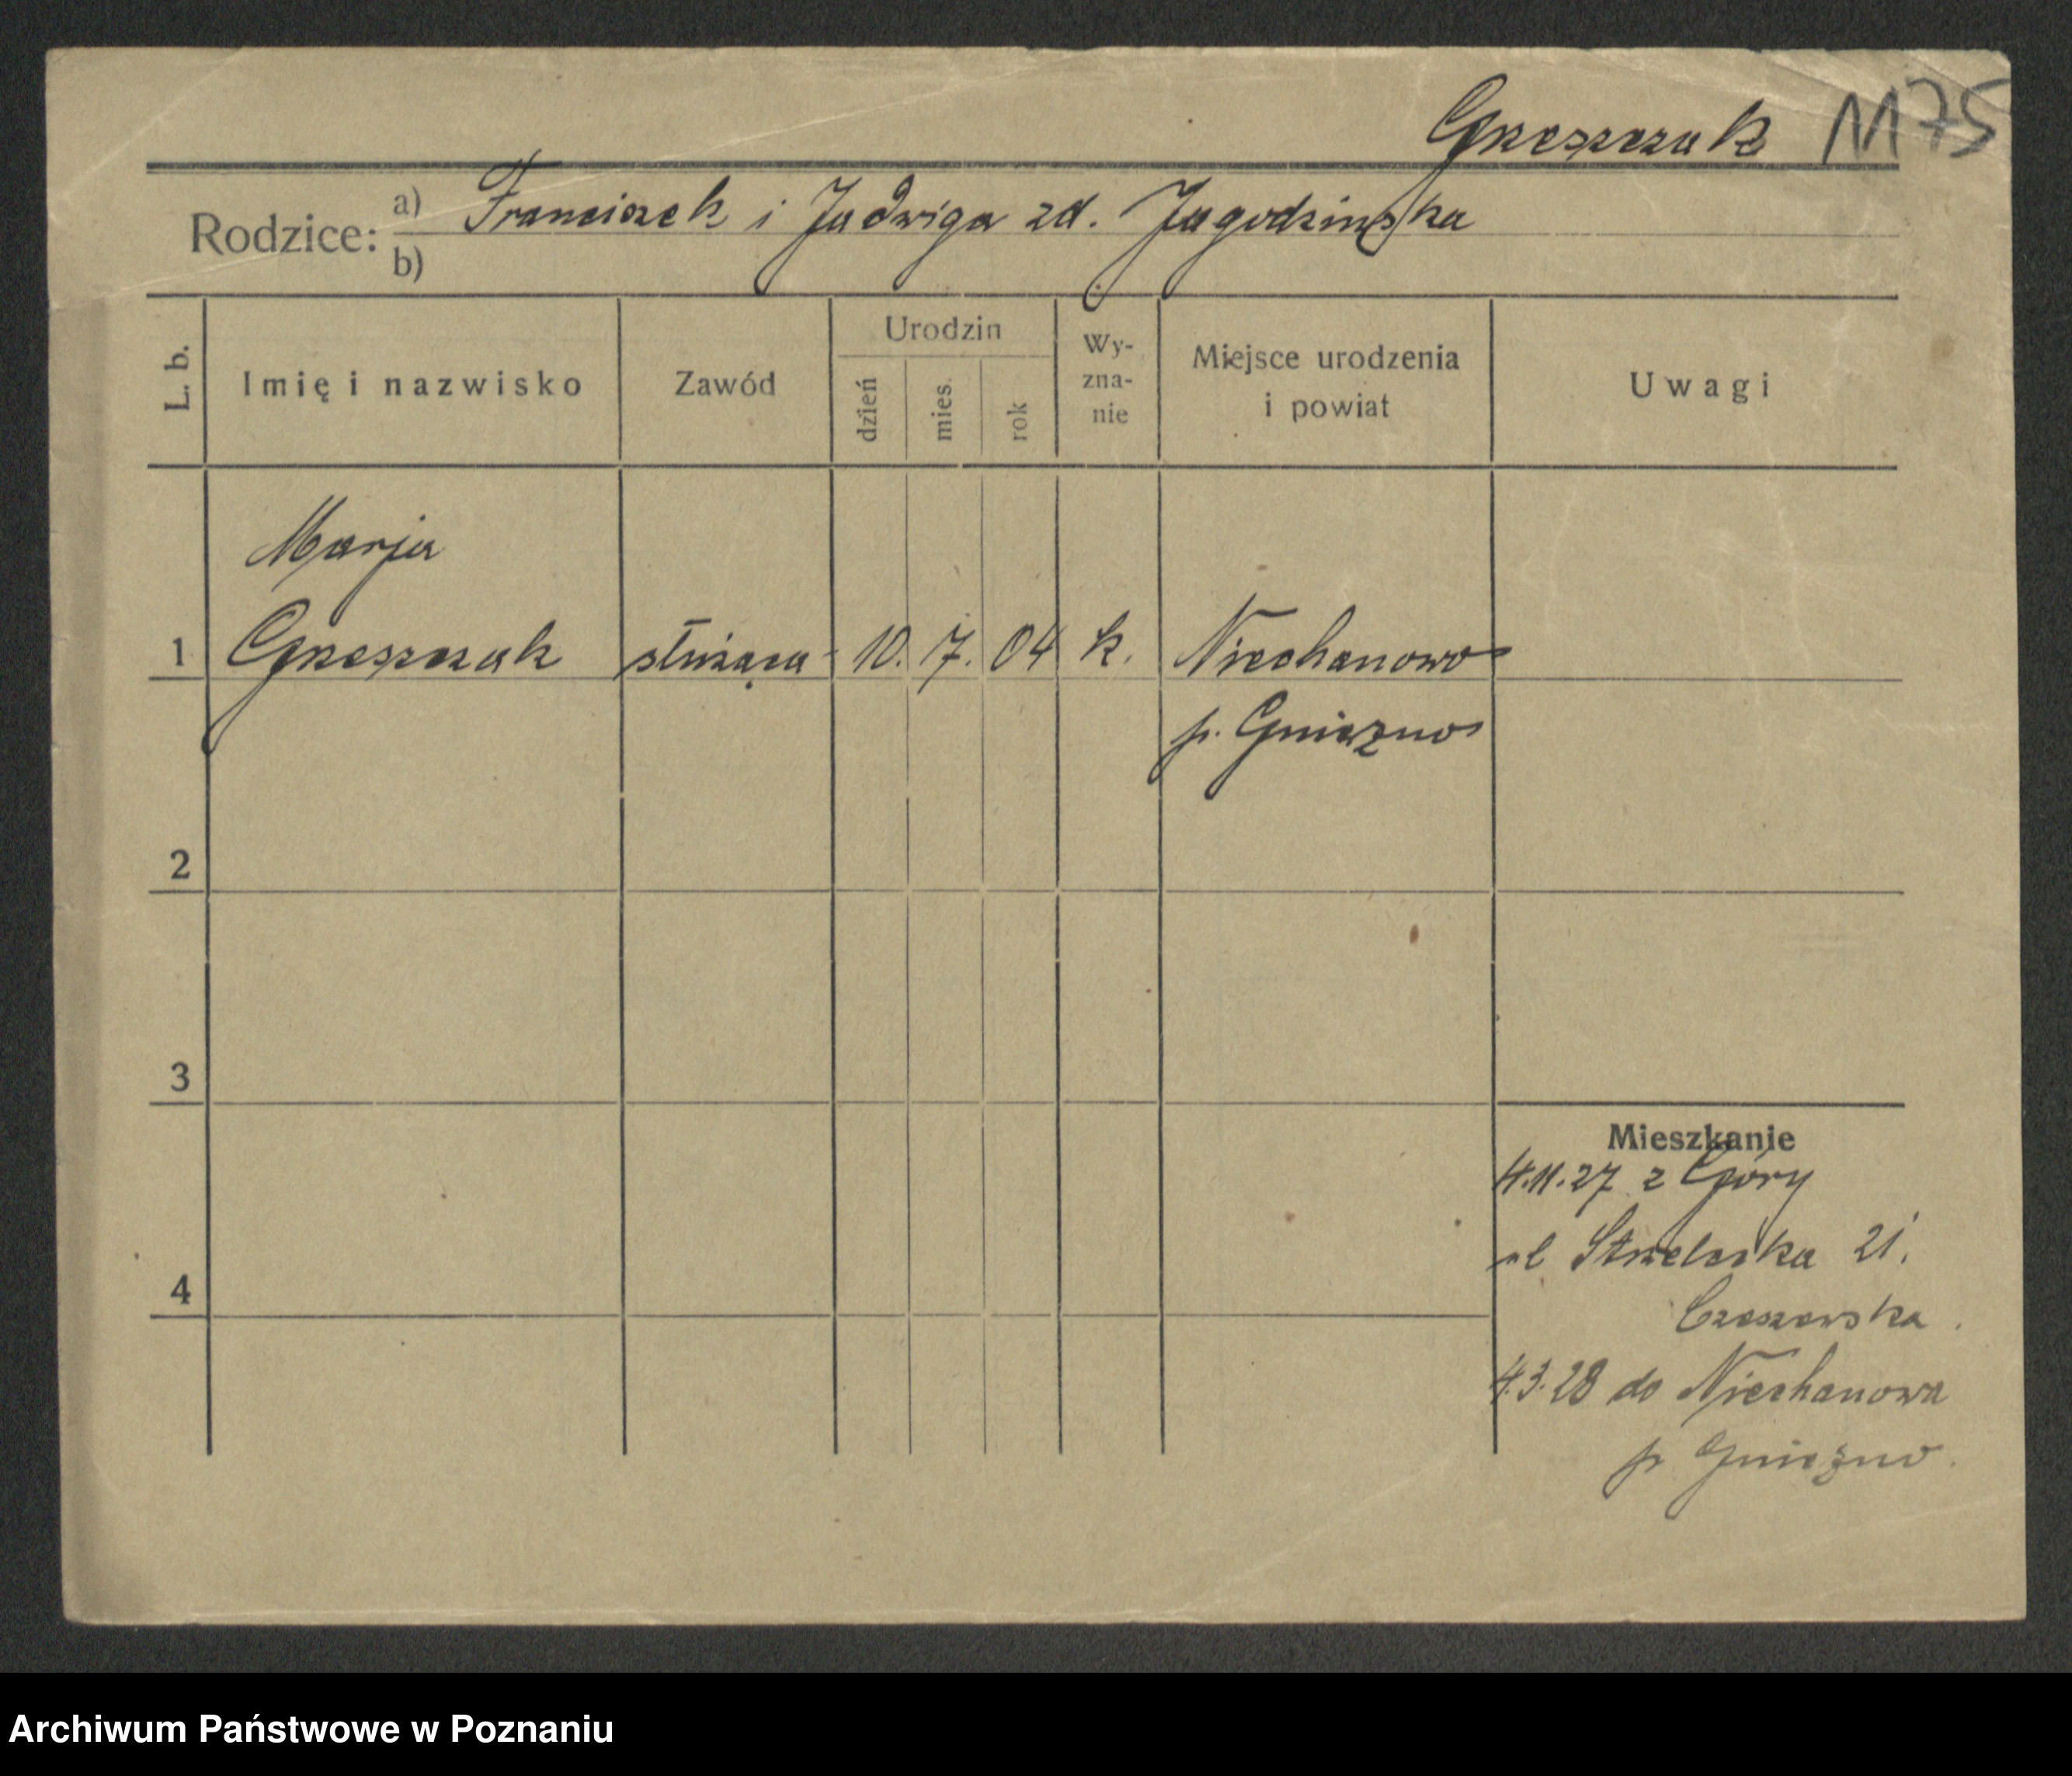 Grzeszczak M75
Rodzice: a) Franciszek i Jadwiga zd. Jagodzińska
b)
L. b. Imię i nazwisko Zawód Urodzin dzień mies. rok Wy-zna-nie Miejsce urodzenia i powiat Uwagi
Marja
1 Grzeszczak służąca 10. 7. 04 k. Niechanowo
p. Gniezno
2
3
Mieszkanie
4.11.27 z Góry
4
ul Strzelecka 21.
Czeszewska.
4.3.28 do Niechanowa
p Gniezno.
Archiwum Państwowe w Poznaniu